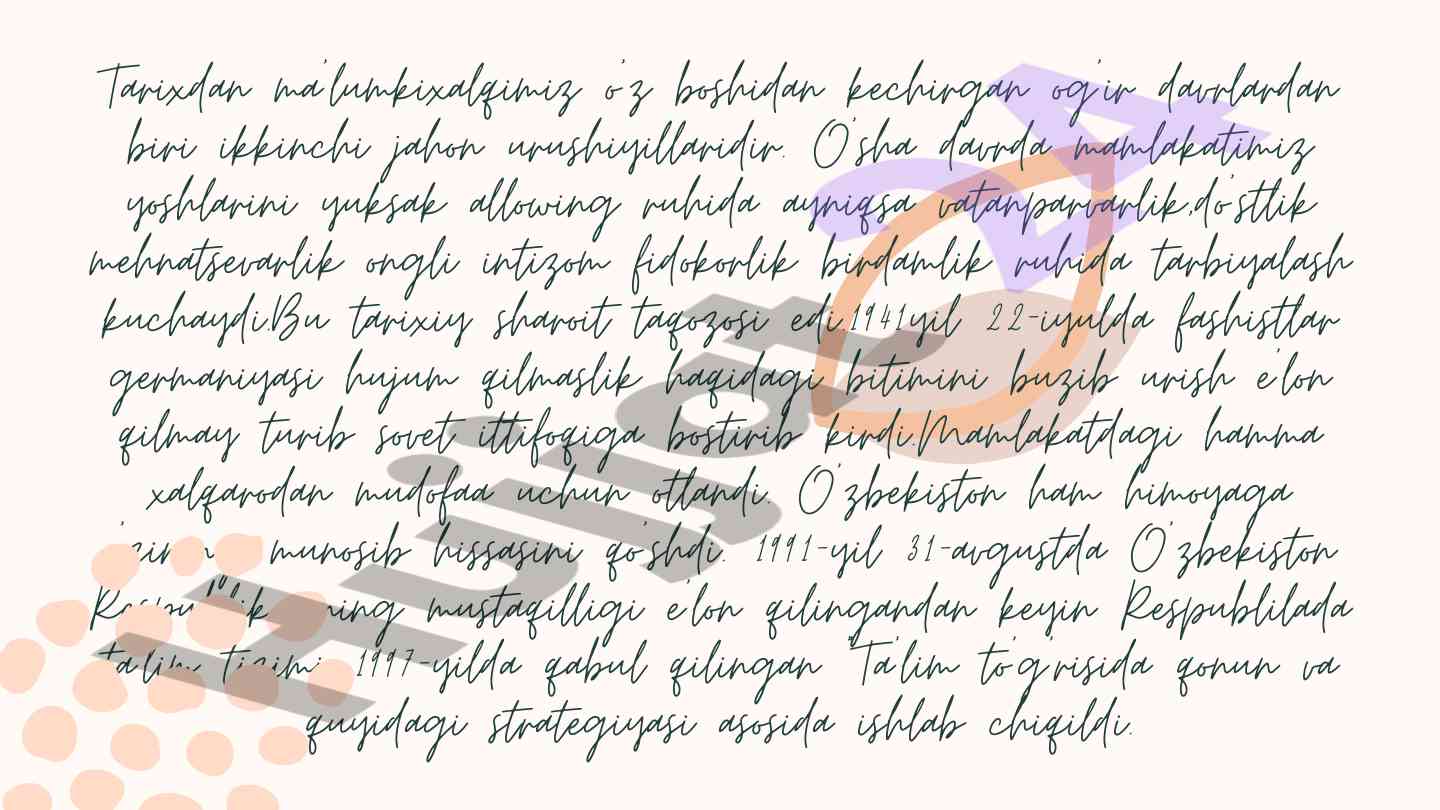 Tarixdan ma'lumkixalqimiz o'z boshidan kechirgan og'ir davrlardan
biri ikkinchi jahon urushiyillaridir. O'sha davrda mamlakatimiz
yoshlarini yuksak allowing ruhida ayniqsa vatanparvarlik,do'stlik
mehnatsevarlik ongli intizom fidokorlik birdamlik ruhida tarbiyalash
kuchaydi.Bu tarixiy sharoit taqozosi edi.1941yil 22-iyulda fashistlar
germaniyasi hujum qilmaslik haqidagi bitimini buzib urish e'lon
qilmay turib sovet ittifoqiga bostirib kirdi.Mamlakatdagi hamma
xalqarodan mudofaa uchun otlandi. O'zbekiston ham himoyaga
munosib hissasini qo'shdi. 1991-yil 31-avgustda O'zbekiston
mustaqilligi e'lon qilingandan keyin Respublilada
ta'lim tizimi 1997-yilda qabul qilingan "Ta'lim to'g'risida qonun va
quyidagi strategiyasi asosida ishlab chiqildi.
Hujjat